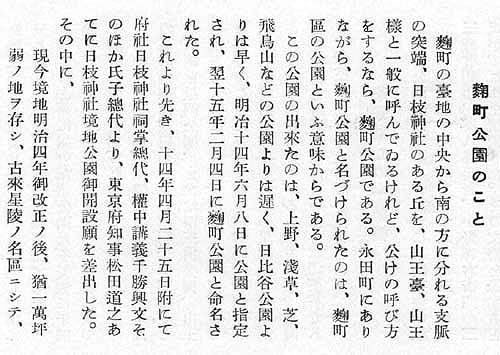 麴町公園のこと
麴町の臺地の中央から南の方に分れる支脈
の突端、日枝神社のある丘を、山王臺、山王
樣と一般に呼んでゐるけれど、公けの呼び方
をするなら、麴町公園である。永田町にあり
ながら、麴町公園と名づけられたのは、麴町
區の公園といふ意味からである。
この公園の出來たのは、上野、淺草、芝、
飛鳥山などの公園よりは遲く、日比谷公園よ
りは早く、明治十四年六月八日に公園と指定
され、翌十五年二月四日に麴町公園と命名さ
れた。
これより先き、十四年四月二十五日附にて
府社日枝神社祠掌總代、權中講義千勝興文そ
のほか氏子總代より、東京府知事松田道之あ
てに日枝神社境地公園御開設願を差出した。
その中に、
現今境地明治四年御改正ノ後、猶一萬坪
弱ノ地ヲ存シ、古來星陵ノ名區ニシテ、